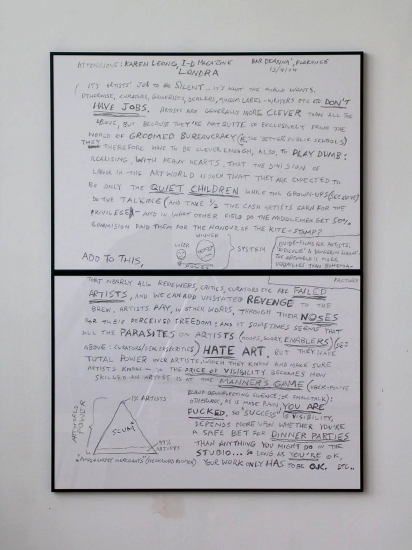 ATTENSIONE: KAREN LEONG, I-D MAGAZINE
LONDRA
BAR DEANNA', FLORENCE
12/4/04
IT'S ARTISTS' JOB TO BE SILENT... IT'S WHAT THE WORLD WANTS.
OTHERWISE, CURATORS, GALLERISTS, DEALERS, MUSEUM LABEL-WRITERS ETC ETC DON'T
HAVE JOBS. ARTISTS ARE GENERALLY MORE CLEVER THAN ALL THE
ABOVE, BUT BECAUSE THEY'RE NOT QUITE SO EXCLUSIVELY FROM THE
WORLD OF GROOMED BUREAUCRACY (THE BETTER PUBLIC SCHOOLS)
THEY THEREFORE HAVE TO BE CLEVER ENOUGH, ALSO, TO PLAY DUMB:
REALISING, WITH HEAVY HEARTS, THAT THE DIVISION OF
LABOUR IN THIS ART WORLD IS SUCH THAT THEY ARE EXPECTED TO
BE ONLY THE QUIET CHILDREN WHILE THE GROWN-UPS (SEE ABOVE)
DO THE TALKING (AND TAKE 1/2 THE CASH ARTISTS EARN FOR THE
PRIVILEGE) - AND IN WHAT OTHER FIELD DO THE MIDDLEMEN GET 50%
COMMISSION AND THEM FOR THE HONOUR OF THE KITE-STAMP?
WINNER
USER
SYSTEM
ADD TO THIS,
FACTORY
THAT NEARLY ALL REVIEWERS, CRITICS, CURATORS ETC ARE FAILED
ARTISTS, AND WE CAN ADD UNSTATED REVENGE TO THE
BREW. ARTISTS PAY, IN OTHER WORDS, THROUGH THEIR NOSES
FOR THEIR PERCEIVED FREEDOM: AND IT SOMETIMES SEEMS THAT
ALL THE PARASITES ON ARTISTS (OOPS, SORRY, ENABLERS) (SEE
ABOVE: CURATORS/DEALERS/CRITICS) HATE ART, BUT THEY HAVE
TOTAL POWER OVER ARTISTS, WHICH THEY KNOW AND MAKE SURE
ARTISTS KNOW - SO THE PRICE OF VISIBILITY BECOMES HOW
SKILLED AN ARTIST IS AT THE MANNERS GAME (UBER-POLITE
SILENCE OR SMALLTALK):
OTHERWISE, AS IS MADE PLAIN, YOU ARE
FUCKED, SO "SUCCESS" IE VISIBILITY,
DEPENDS MORE UPON WHETHER YOU'RE
A SAFE BET FOR DINNER PARTIES
THAN ANYTHING YOU MIGHT DO IN THE
STUDIO... SO LONG AS YOU'RE OK,
YOUR WORK ONLY HAS TO BE O.K. ETC..
ARTWORLD
POWER
1% ARTISTS
SCUM*
99%
ARTISTS